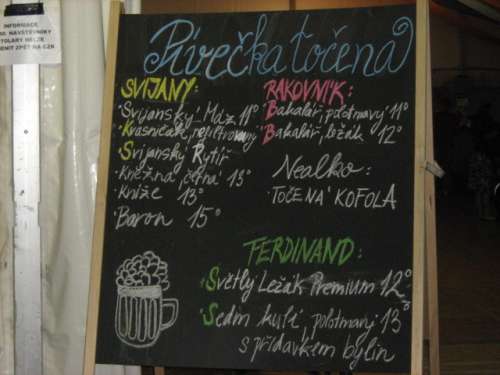 INFORMACE
NAVŠTĚVNÍKY
ŽETONY NELZE
VYMĚNIT ZPĚT NA CZK
Pívečka točená
SVIJANY:
Svijanský Máz 11°
Kvasničák, nefiltrovaný
Svijanský Rytíř
Kněžna, černá 13°
Kníže 13°
Baron 15°
RAKOVNÍK:
Bakalář, polotmavý 11°
Bakalář, ležák 12°
Nealko:
TOČENÁ KOFOLA
FERDINAND:
Světlý Ležák Premium 12°
Sedm kulí, polotmavý 13°
s přídavkem bylin